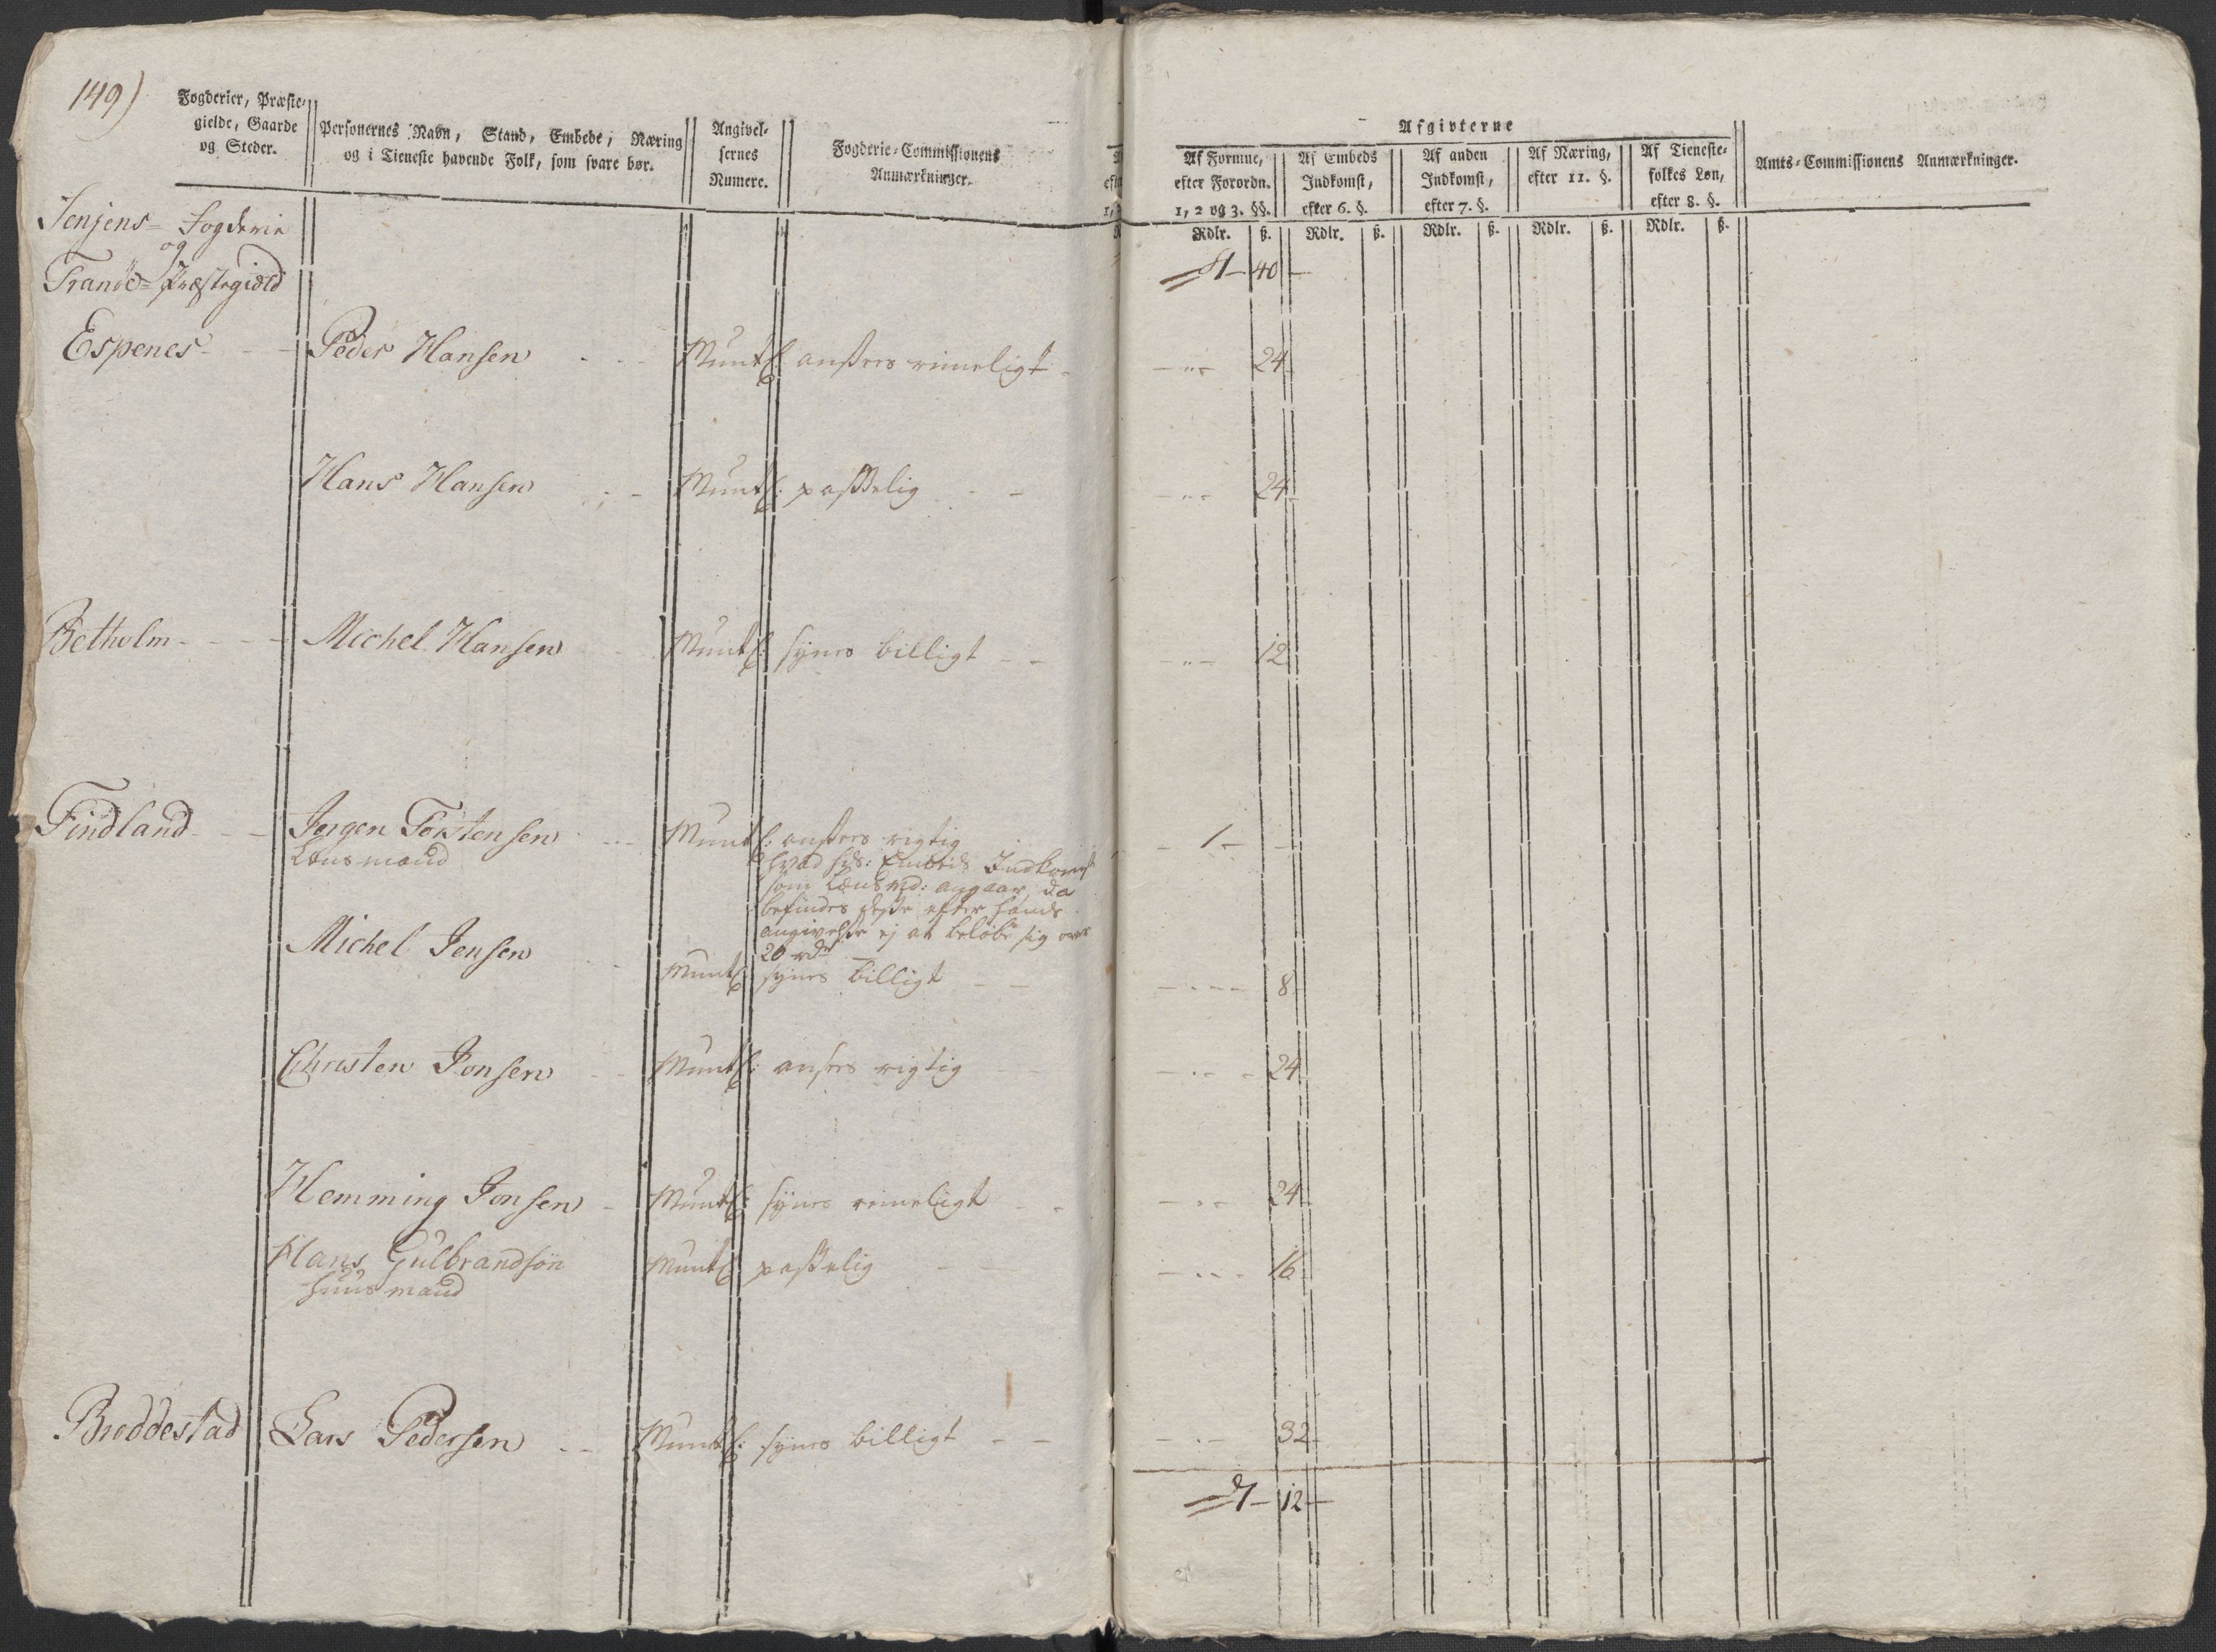 149)
Fogderier, Præste-
gielde, Gaarde
og Steder.
Personernes Navn, Stand, Embede, Næring
og i Tieneste havende Folk, som svare bør.
Angivel-
sernes
Numere.
Fogderie-Commissionens
Anmærkninger.
Afgivterne
Af Formue,
efter Forordn.
1, 2 og 3. §§.
Af Embeds
Indkomst,
efter 6. §.
Af anden
Indkomst,
efter 7. §.
Af Næring,
efter 11. §.
Af Tieneste-
folkes Løn,
efter 8. §.
Amts-Commissionens Anmærkninger.
Rdlr. ß. Rdlr. ß. Rdlr. ß. Rdlr. ß. Rdlr. ß.
Senjens Fogderie
og
Tranöe Præstegield
40
Espenes Peder Hansen Muntl: ansees rimeligt 24
Hans Hansen Muntl: passelig 24
Betholm Michel Hansen Muntl: synes billigt 12
Findland Jørgen Torstensen Muntl: ansees rigtig 1
Lensmand
hvad hs: Embeds Indkomst
som Lænsmd: angaar, da
befindes efter hands
angivelse ej at beløbe sig over
20 rdr
Michel Jensen Muntl: synes billigt 8
Christen Jonsen Muntl: ansees rigtig 24
Hemming Jonsen Muntl: synes rimeligt 24
Hans Gulbrandsön Muntl: passelig 16
Huusmand
Breddestad Lars Pedersen Muntl: synes billigt 32
12